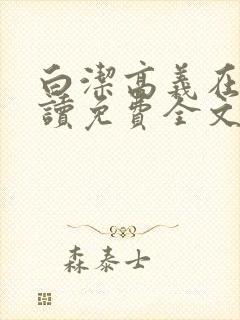 白潔高義在
讀免費全文
森泰士